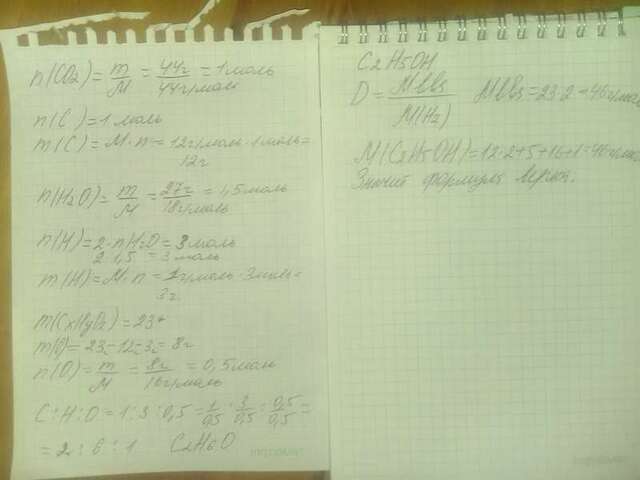 n(CO₂) = m/M = 44г/44г/моль = 1 моль
n(C) = 1 моль
m(C) = M·n = 12г/моль · 1 моль =
12г
n(H₂O) = m/M = 27г/18г/моль = 1,5 моль
n(H) = 2·nH₂O = 3 моль
2·1,5 = 3 моль
m(H) = M·n = 1г/моль · 3 моль =
3г.
m(CxHyOz) = 23г
m(O) = 23г-12г-3г = 8г
n(O) = m/M = 8г/16г/моль = 0,5 моль
C:H:O = 1:3:0,5 = 1/0,5 : 3/0,5 : 0,5/0,5 =
= 2:6:1 C₂H₆O
C₂H₅OH
D = Mвв/M(H₂) Mвв = 23·2 = 46г/моль
M(C₂H₅OH) = 12·2+5+16+1 = 46г/моль
Значит формула верна.